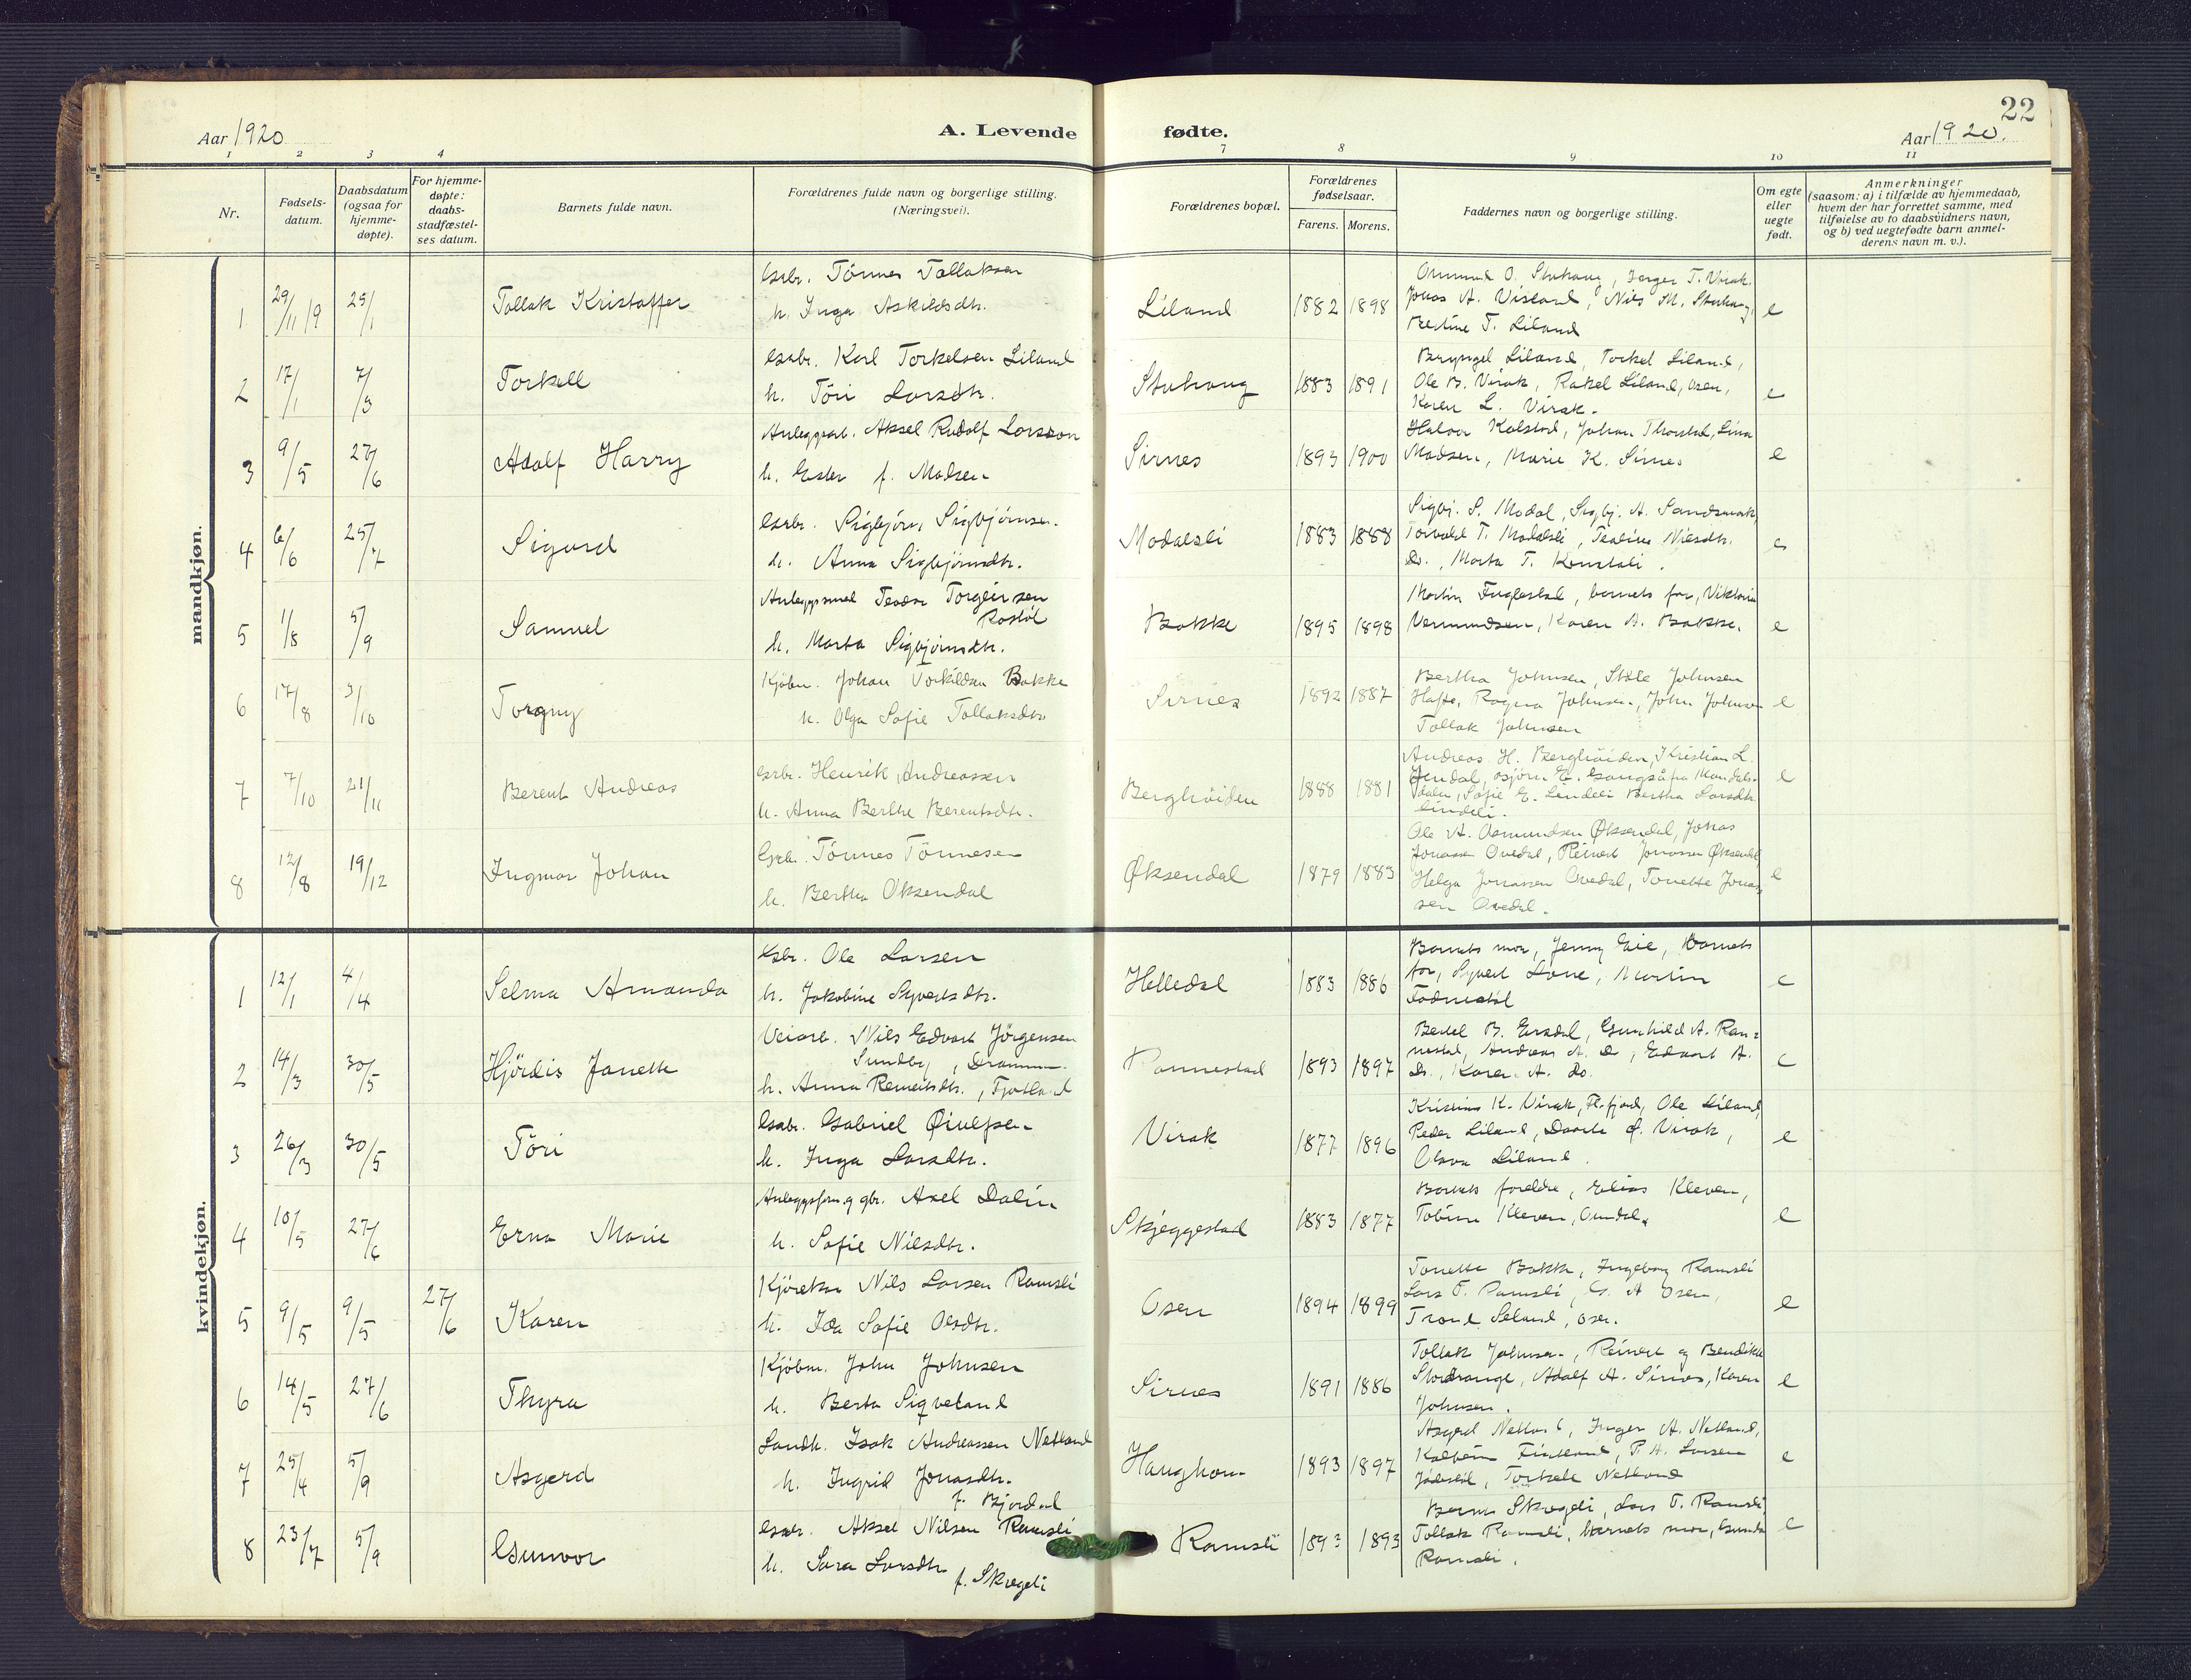 22
Aar 1920
A. Levende fødte.
Aar 1920.
1 2 3 4 7 8 9 10 11
Nr.
Fødselsdatum.
Daabsdatum (ogsaa for hjemmedøpte).
For hjemmedøpte: daabsstadfæstelses datum.
Barnets fulde navn.
Forældrenes fulde navn og borgerlige stilling. (Næringsvei).
Forældrenes bopæl.
Forældrenes fødselsaar.
Farens. Morens.
Faddernes navn og borgerlige stilling.
Om egte eller uegte født.
Anmerkninger
(saasom: a) i tilfælde av hjemmedaab, hvem der har forrettet samme, med tilføielse av to daabsvidners navn, og b) ved uegtefødte barn anmelderens navn m. v.).
mandkjøn.
1 29/11 19 25/1 Tollak Kristoffer
Gsbr. Tönnes Tollaksen
h. Inga Askildsdtr.
Liland 1882 1898
Jonas A. Visland, Nils M. Stuhaug,
Bertine T. Liland
e
2 17/1 7/3 Torkell
Gsbr. Karl Torkelsen Liland
h. Töri Larsdtr.
Stuhaug 1883 1891
Bryngel Liland, Torkel Liland,
Ole B. Virak, Rakel Liland, Osen,
Karen L. Virak.
e
3 9/5 27/6 Adolf Harry
Anleggsarb. Aksel Rudolf Larsson
h. Ester f. Madsen
Sirnes 1893 1900
Halvor Kalstad, Johan Thorstad, Lina
Madsen, Marie K. Sirnes
e
4 6/6 25/7 Sigurd
Gsbr. Sigbjörn Sigbjörnsen.
h. Anna Sigbjörnsdtr.
Modalsli 1883 1888
Sigbj. S. Modal, Sigbj. A. Sandsmark,
Torvald T. Modalsli, Teoline Nilsdtr.
Do., Marta T. Konstali.
e
5 1/8 5/9 Samuel
Anleggssmed Teodor Torgeirsen
Rostöl
h. Marta Sigbjörnsdtr.
Bakke 1895 1898
Martin Fuglestad, barnets far, Viktoria
Vermundsen, Karen A. Bakke.
e
6 17/8 3/10 Torgny
Kjöbm. Johan Torkildsen Bakke
h. Olga Sofie Tollaksdtr
Sirnes 1892 1887
Bertha Johnsen, Ståle Johnsen
Hafte, Ragna Johnsen, John Johnsen
Tollak Johnsen
e
7 7/10 21/11 Berent Andreas
Gsbr. Henrik Andreassen
h. Anna Berthe Berentsdtr.
Berghöiden 1888 1881
Andreas H. Berghöiden, Kristian L.
Lindeli.
e
8 12/8 19/12 Ingmar Johan
Gsbr. Tönnes Tönnesen
h. Bertha Öksendal
Øksendal 1879 1883
Ole A. Osmundsen Øksendal, Jonas
Jonassen Ovedal, Reinert Jonassen Øksendal
Helga Jonassen Ovedal, Tonette Jonas
sen Ovedal.
e
kvindekjøn.
1 12/1 4/4 Selma Amanda
Gsbr. Ole Larsen
h. Jakobine Syvertsdtr.
Helledal 1883 1886
Barnets mor, Jenny Eie, Barnets
far, Syvert Lone, Martin
e
2 14/3 30/5 Hjördis Janette
Veiarb. Nils Edvart Jörgensen
Sundby, Drammen.
h. Anna Reinertsdtr., Fjotland
Rannestad 1893 1897
Bertel B. Ersdal, Gunhild A. Ran=
nestad, Andreas A. Do, Edvart A.
Do., Karen A. Do.
e
3 26/3 30/5 Töri
Gsbr. Gabriel Øiulfsen
h. Inga Larsdtr.
Virak 1877 1896
Kristine K. Virak, Fl.fjord, Ole Liland,
Peder Liland, Dorte O. Virak,
Olava Liland.
e
4 10/5 27/6 Erna Marie
Anleggsform. og gbr. Axel Dalin
h. Sofie Nilsdtr.
Skjeggestad 1883 1877
Barnets foreldre, Elias Kleven,
Tobine Kleven,
e
5 9/5 9/5 27/6 Karen
Kjörekar Nils Larsen Ramsli
h. Ida Sofie Olsdtr.
Osen 1894 1899
Tonette Bakke, Ingeborg Ramsli
Lars T. Ramsli, G. A. Osen,
Trond Seland, Osen.
e
6 14/5 27/6 Thyra
Kjöbm. John Johnsen
h. Berta Sigveland
Sirnes 1891 1886
Tollak Johnsen, Reinert og Bendikte
Stordrange, Adolf A. Sirnes, Karen
Johnsen.
e
7 25/4 5/9 Asgerd
Landh. Isak Andreassen Netland
h. Ingrid Jonasdtr.
f. Bjordal
Haughom 1893 1897
Asgerd Netland, Inger A. Netland,
Kolbein Fintland, P. A. Larsen
Jödestöl, Torkele Netland
e
8 23/7 5/9 Gunvor
Gsbr. Aksel Nilsen Ramsli
h. Sara Larsdtr
f. Skregeli
Ramsli 1893 1893
Berna Skregeli, Lars T. Ramsli
Tollak Ramsli, barnets mor, Gunda
Ramsli.
e